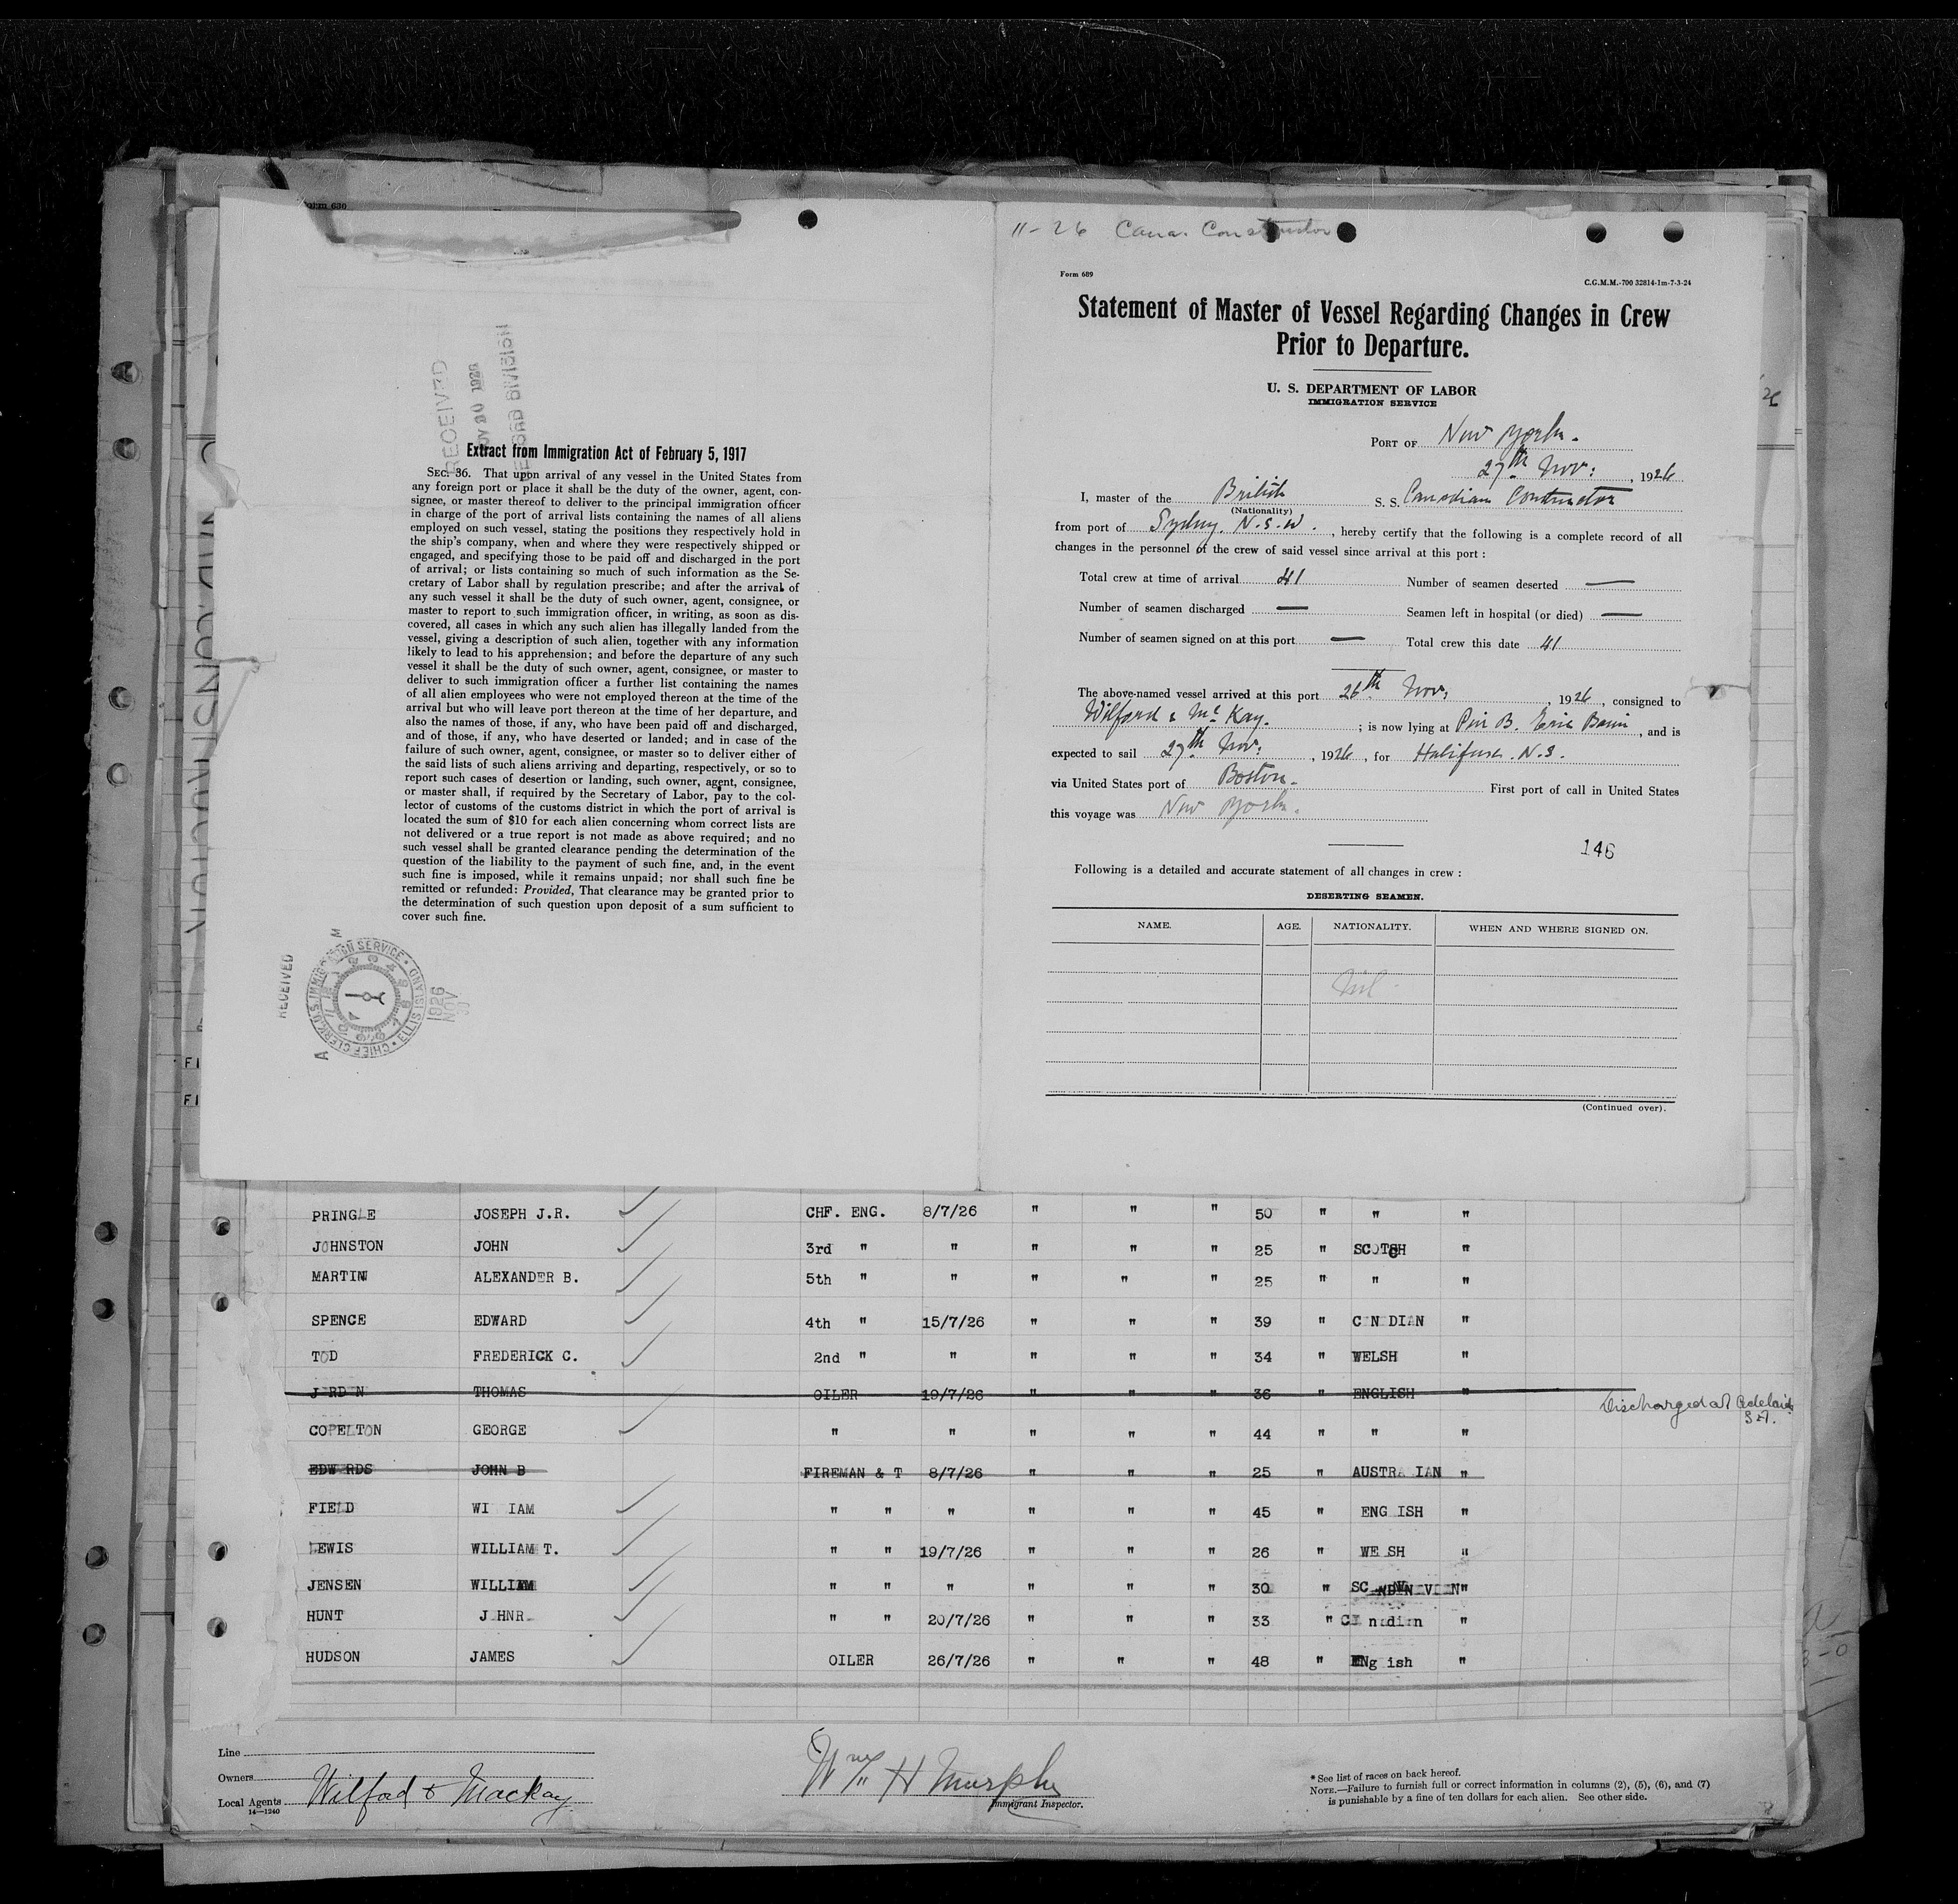 Form 630
RECEIVED
NOV 30 1926
RECORD DIVISION
Extract from Immigration Act of February 5, 1917
SEC. 36. That upon arrival of any vessel in the United States from
any foreign port or place it shall be the duty of the owner, agent, con-
signee, or master thereof to deliver to the principal immigration officer
in charge of the port of arrival lists containing the names of all aliens
employed on such vessel, stating the positions they respectively hold in
the ship's company, when and where they were respectively shipped or
engaged, and specifying those to be paid off and discharged in the port
of arrival; or lists containing so much of such information as the Se-
cretary of Labor shall by regulation prescribe; and after the arrival of
any such vessel it shall be the duty of such owner, agent, consignee, or
master to report to such immigration officer, in writing, as soon as dis-
covered, all cases in which any such alien has illegally landed from the
vessel, giving a description of such alien, together with any information
likely to lead to his apprehension; and before the departure of any such
vessel it shall be the duty of such owner, agent, consignee, or master to
deliver to such immigration officer a further list containing the names
of all alien employees who were not employed thereon at the time of the
arrival but who will leave port thereon at the time of her departure, and
also the names of those, if any, who have been paid off and discharged,
and of those, if any, who have deserted or landed; and in case of the
failure of such owner, agent, consignee, or master so to deliver either of
the said lists of such aliens arriving and departing, respectively, or so to
report such cases of desertion or landing, such owner, agent, consignee,
or master shall, if required by the Secretary of Labor, pay to the col-
lector of customs of the customs district in which the port of arrival is
located the sum of $10 for each alien concerning whom correct lists are
not delivered or a true report is not made as above required; and no
such vessel shall be granted clearance pending the determination of the
question of the liability to the payment of such fine, and, in the event
such fine is imposed, while it remains unpaid; nor shall such fine be
remitted or refunded: Provided, That clearance may be granted prior to
the determination of such question upon deposit of a sum sufficient to
cover such fine.
RECEIVED
CHIEF CLERK U.S. IMMIGRATION SERVICE • ELLIS ISLAND •
A M
1926
NOV
11-26 Cana. Constructor
Form 689
C.G.M.M.-700 32814-1m-7-3-24
Statement of Master of Vessel Regarding Changes in Crew
Prior to Departure.
U. S. DEPARTMENT OF LABOR
IMMIGRATION SERVICE
PORT OF New York.
27th Nov: , 1926
I, master of the British S. S. Canadian Constructor
(Nationality)
from port of Sydney. N.S.W. , hereby certify that the following is a complete record of all
changes in the personnel of the crew of said vessel since arrival at this port :
Total crew at time of arrival 41 Number of seamen deserted —
Number of seamen discharged — Seamen left in hospital (or died) —
Number of seamen signed on at this port — Total crew this date 41
The above-named vessel arrived at this port 26th Nov: , 1926, consigned to
Wilford & McKay. ; is now lying at Pier B. Erie Basin , and is
expected to sail 27th Nov: , 1926, for Halifax. N.S.
via United States port of Boston. First port of call in United States
this voyage was New York.
146
Following is a detailed and accurate statement of all changes in crew :
DESERTING SEAMEN.
NAME. AGE. NATIONALITY. WHEN AND WHERE SIGNED ON.
Nil
(Continued over).
PRINGLE JOSEPH J.R. CHF. ENG. 8/7/26 " " " 50 " " "
JOHNSTON JOHN 3rd " " " " " 25 " SCOTCH "
MARTIN ALEXANDER B. 5th " " " " " 25 " " "
SPENCE EDWARD 4th " 15/7/26 " " " 39 " C N DIAN "
TOD FREDERICK C. 2nd " " " " " 34 " WELSH "
J RD N THOMAS OILER 19/7/26 " " " 36 " ENGLISH "
Discharged at Adelaide
S.A.
COPELTON GEORGE " " " " " 44 " " "
EDW RDS JOHN B FIREMAN & T 8/7/26 " " " 25 " AUSTRA IAN "
FIELD WI IAM " " " " " " 45 " ENG ISH "
LEWIS WILLIAM T. " " 19/7/26 " " " 26 " WE SH "
JENSEN WILLIAM " " " " " " 30 "
HUNT J HNR " " 20/7/26 " " " 33 " C n di n "
HUDSON JAMES OILER 26/7/26 " " " 48 " ENg ish "
Line
Owners
Local Agents Wilford & Mackay
14—1240
Wm H Murphy
Immigrant Inspector.
* See list of races on back hereof.
NOTE.—Failure to furnish full or correct information in columns (2), (5), (6), and (7)
is punishable by a fine of ten dollars for each alien. See other side.